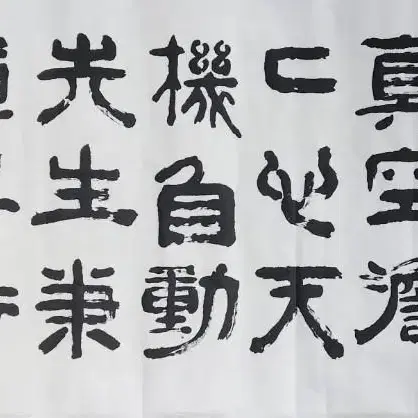 真空澹
心天
機自動
先生兼